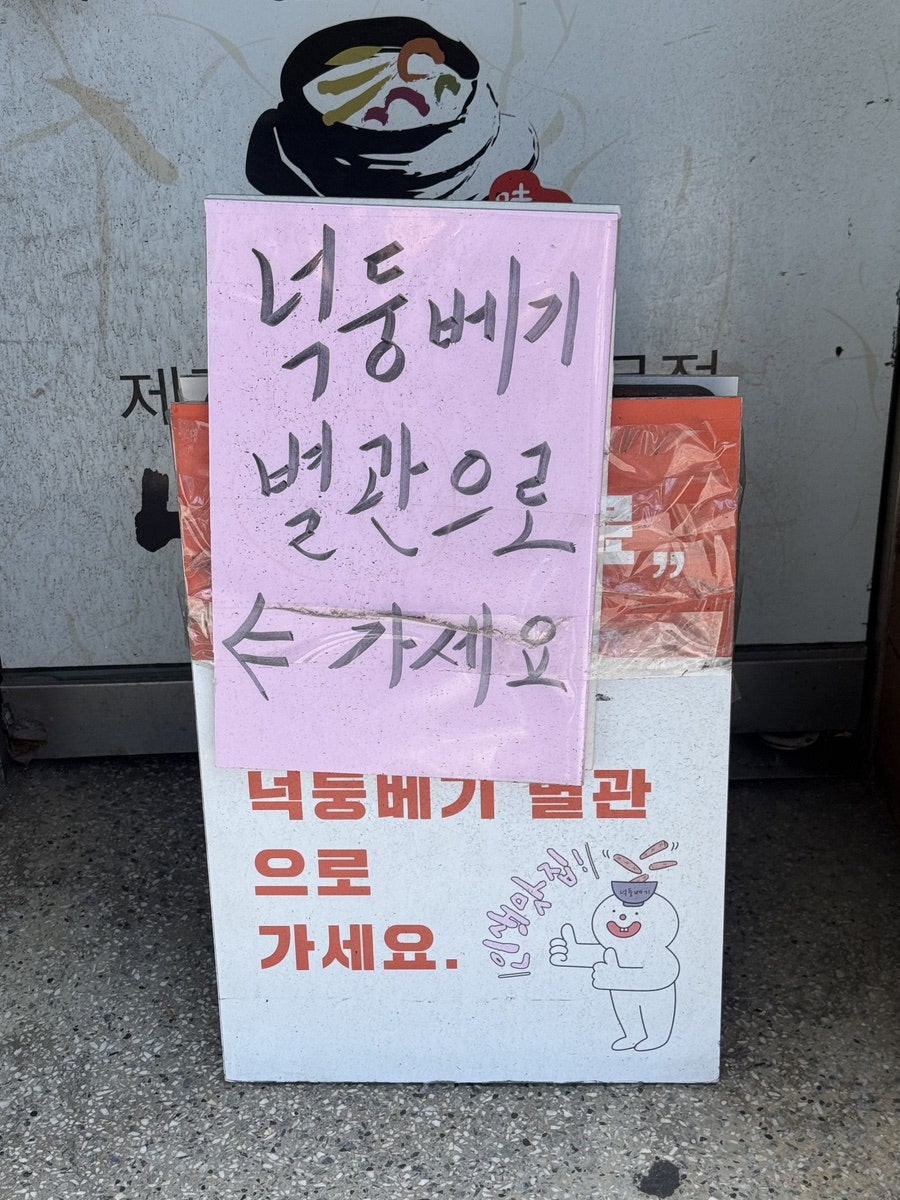 넉둥베기
별관으로
← 가세요
넉둥베기 별관
으로
가세요.
인생맛집!!
넉둥베기